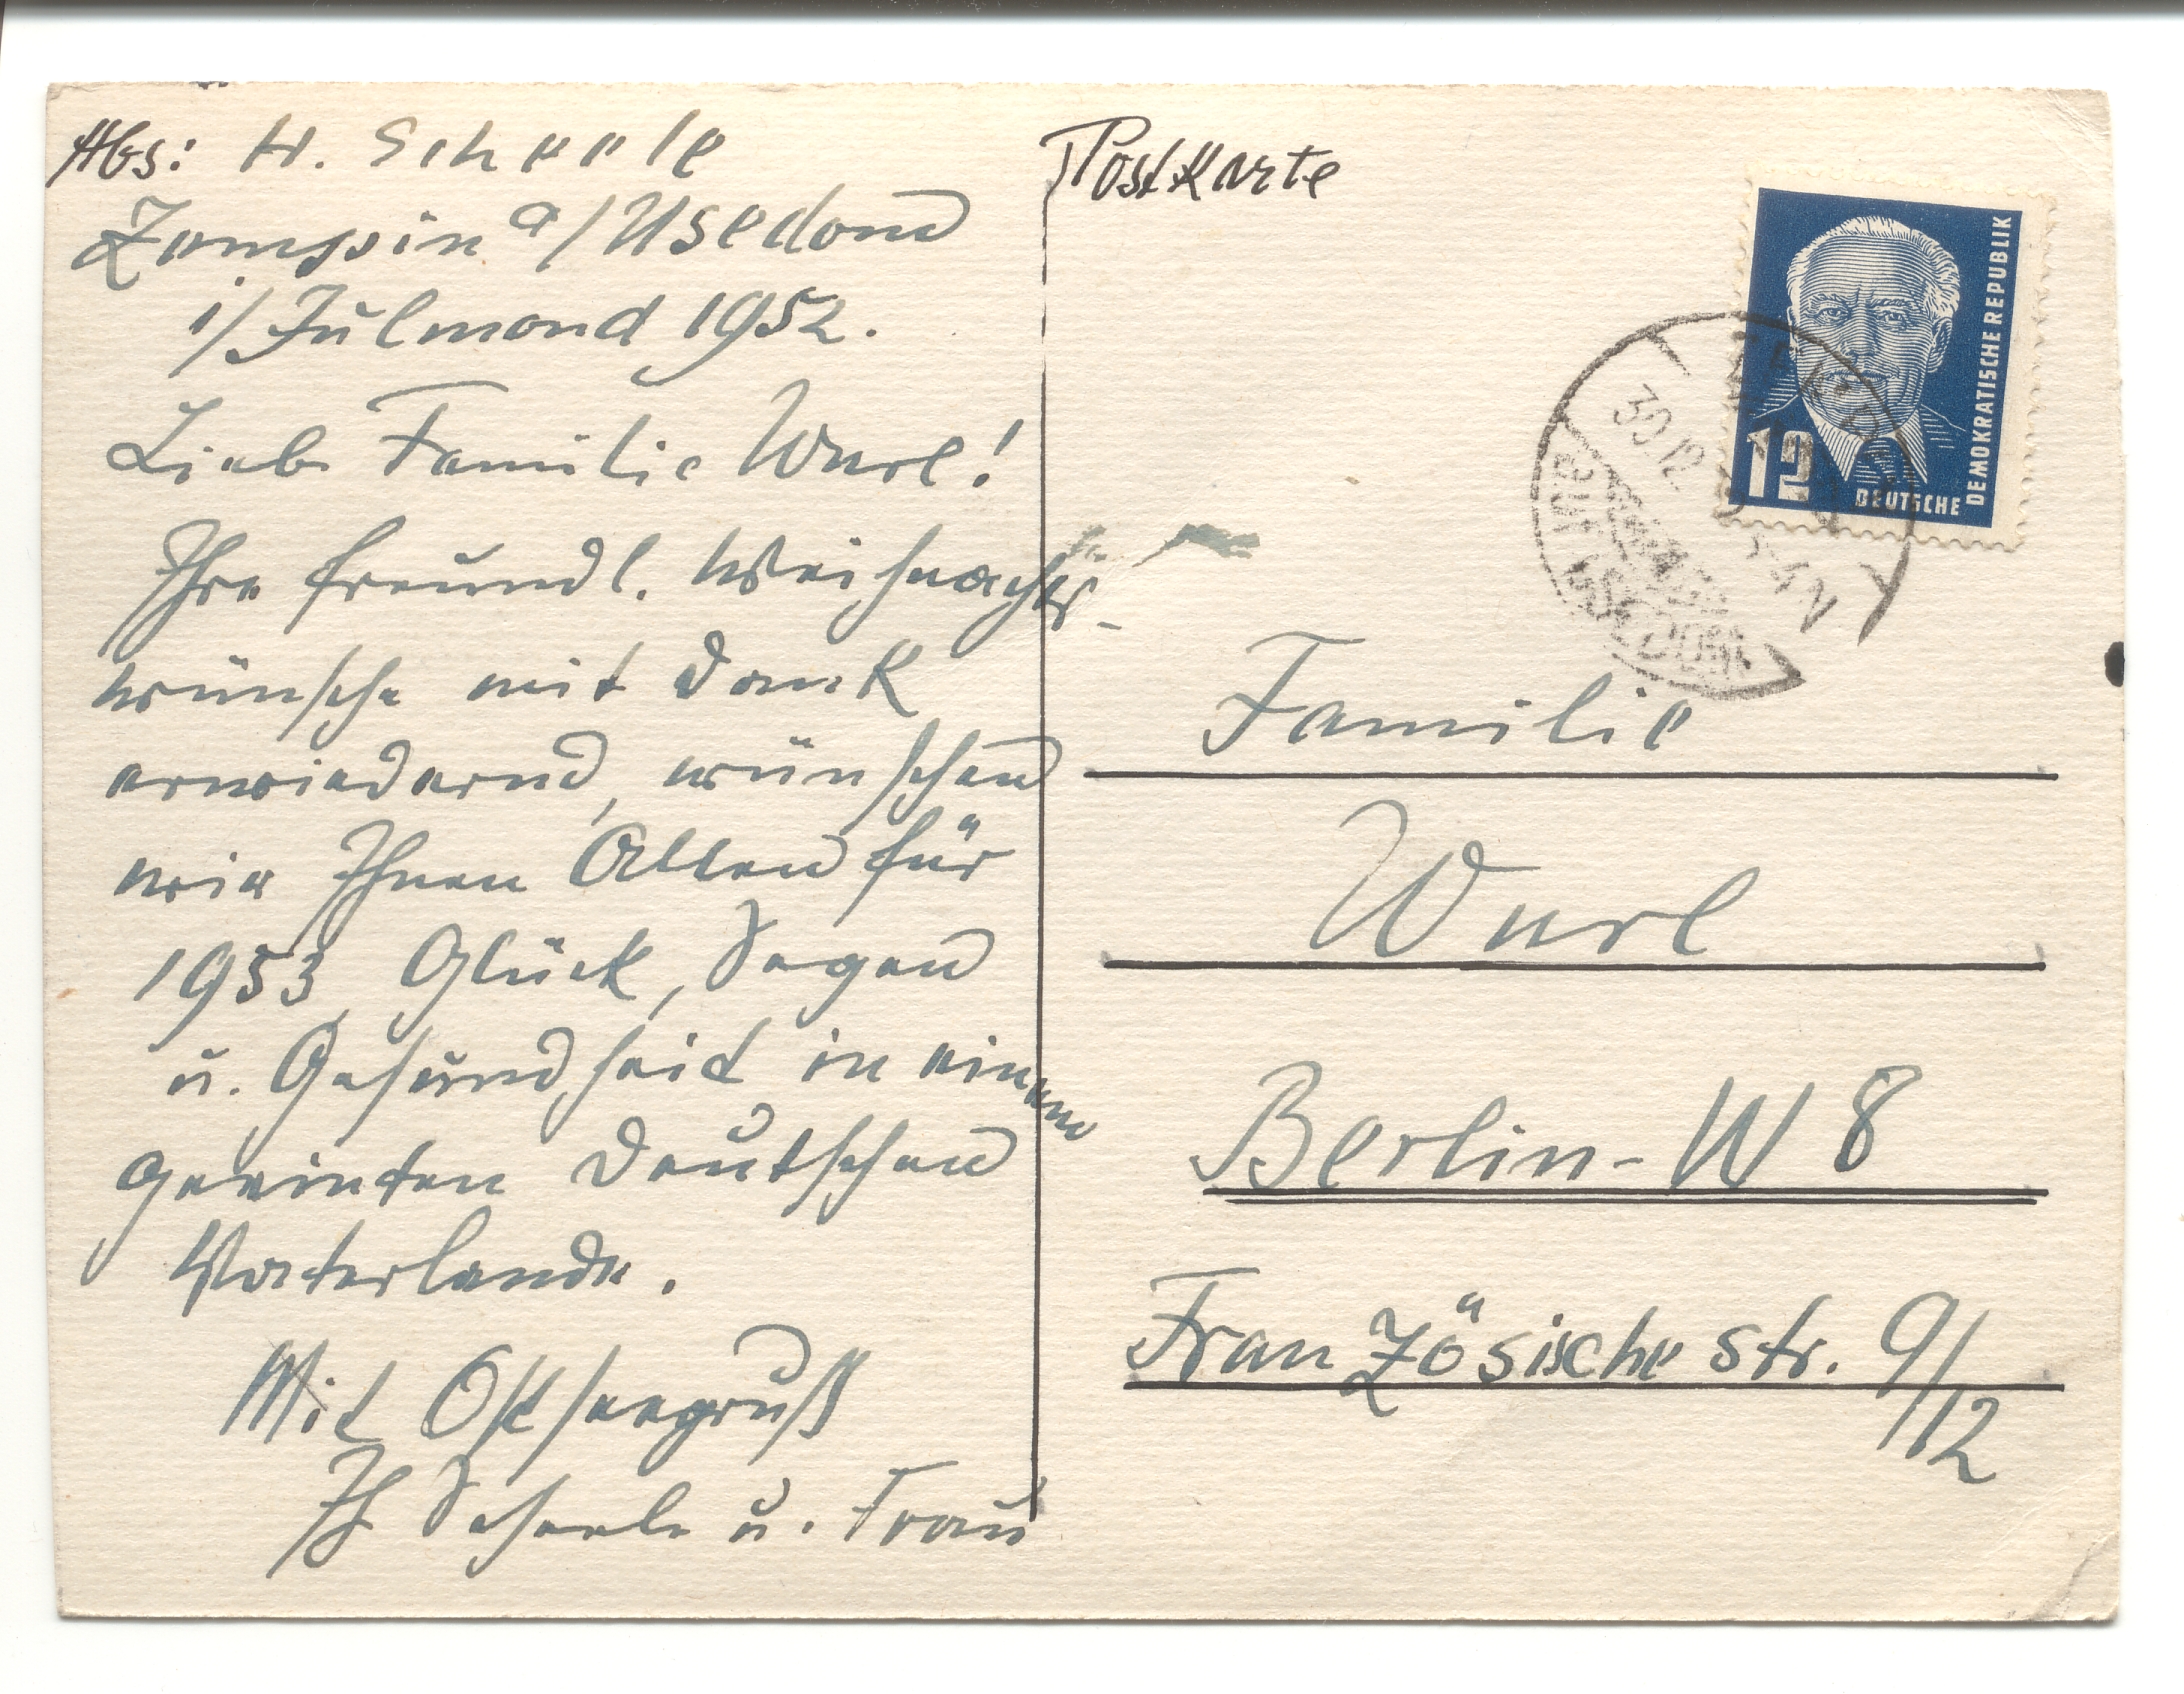 Abs: H. Scheele
Zempin a/Usedom
i/Julmond 1952.
Liebe Familie Wurl!
Ihre freundl. Weihnachts-
wünsche mit Dank
erwiedernd, wünschen
wir Ihnen Allen für
1953 Glück, Segen
u. Gesundheit in einem
geeinten Deutschen
Vaterlande.
Mit Ostseegruß
Ih Scheele u. Frau
Postkarte
DEUTSCHE DEMOKRATISCHE REPUBLIK
12
30.12
-4N
Familie
Wurl
Berlin-W 8
Französische str. 9/12